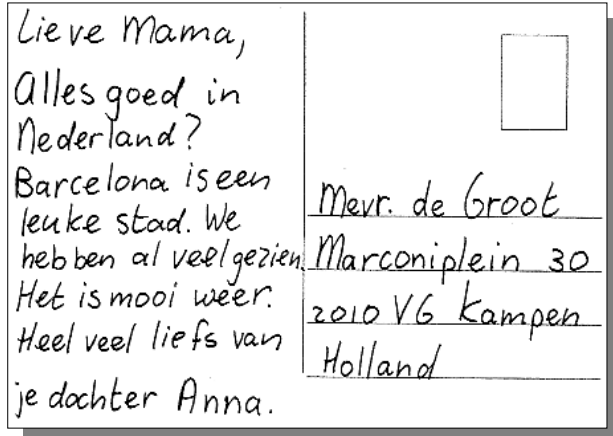 Lieve Mama,
Alles goed in
Nederland?
Barcelona is een
leuke stad. We
hebben al veel gezien.
Het is mooi weer.
Heel veel liefs van
je dochter Anna.
Mevr. de Groot
Marconiplein 30
2010 VG Kampen
Holland